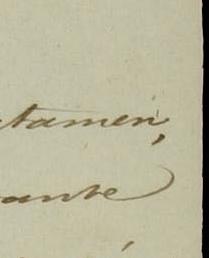 tamen,
ante